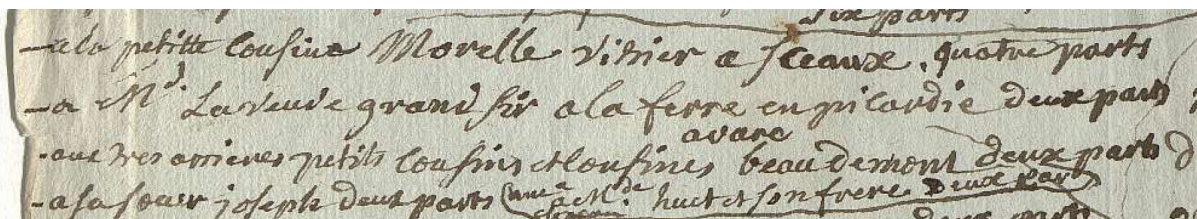 six parts
- a la petitte cousine Morelle Vitrier a Sceaux, quatre parts
- a Md. La veuve grand sir a la ferre en picardie deux parts
avare
- aux tres arrieres petits cousins et cousines beaudemont deux parts d
- a sa soeur joseph deux parts (une a Md. huet et son frere deux parts
deux parts